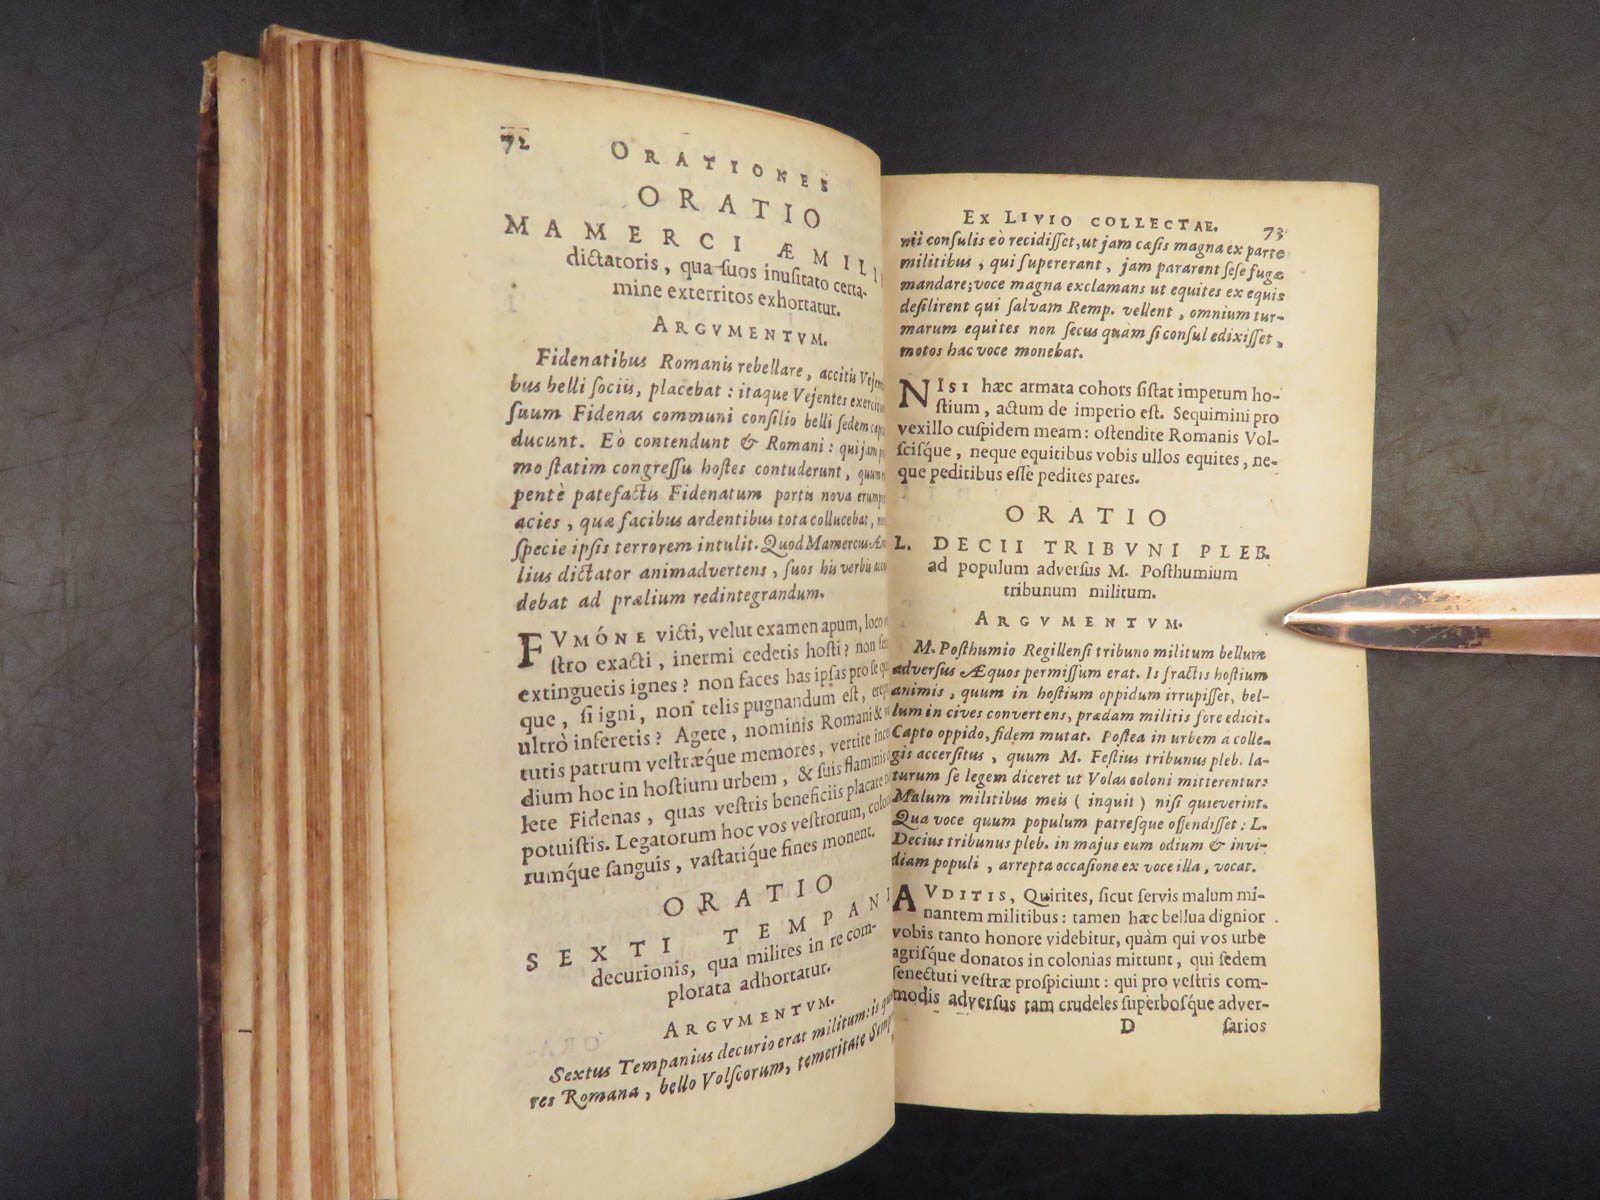 72
ORATIONES
ORATIO
MAMERCI ÆMILI
dictatoris, qua suos inusitato certa-
mine exterritos exhortatur.
ARGVMENTVM.
Fidenatibus Romanis rebellare, accitis Vejen
bus belli sociis, placebat: itaque Vejentes exercit
suum Fidenas communi consilio belli sedem
ducunt. Eò contendunt & Romani: qui jam
mo statim congressu hostes contuderunt,
pentè patefactis Fidenatum portis nova
acies, quæ facibus ardentibus tota collucebat,
specie ipsis terrorem intulit. Quod Mamercus
lius dictator animadvertens, suos his verbis
debat ad prælium redintegrandum.
FVMÓNE victi, velut examen apum, loco
stro exacti, inermi cedetis hosti? non
extinguetis ignes? non faces has ipsas pro se
que, si igni, non telis pugnandum est,
ultrò inferetis? Agete, nominis Romani &
tutis patrum vestræque memores, vertite
dium hoc in hostium urbem, & suis flammis
lete Fidenas, quas vestris beneficiis placare
potuistis. Legatorum hoc vos vestrorum, colo
rumque sanguis, vastatíque fines monent.
ORATIO
SEXTI TEMPANI
decurionis, qua milites in re com-
plorata adhortatur.
ARGVMENTVM.
Sextus Tempanius decurio erat militum: is
res Romana, bello Volscorum, temeritate Semp
EX LIVIO COLLECTAE. 73
nii consulis eò recidisset, ut jam cæsis magna ex parte
militibus, qui supererant, jam pararent sese fugæ
mandare; voce magna exclamans ut equites ex equis
desilirent qui salvam Remp. vellent, omnium tur-
marum equites non secus quàm si consul edixisset,
motos hac voce monebat.
NISI hæc armata cohors sistat impetum ho-
stium, actum de imperio est. Sequimini pro
vexillo cuspidem meam: ostendite Romanis Vol-
scisque, neque equitibus vobis ullos equites, ne-
que peditibus esse pedites pares.
ORATIO
L. DECII TRIBVNI PLEB.
ad populum adversus M. Posthumium
tribunum militum.
ARGVMENTVM.
M. Posthumio Regillensi tribuno militum bellum
adversus Æquos permissum erat. Is fractis hostium
animis, quum in hostium oppidum irrupisset, bel-
lum in cives convertens, prædam militis fore edicit.
Capto oppido, fidem mutat. Postea in urbem a colle-
gis accersitus, quum M. Festius tribunus pleb. la-
turum se legem diceret ut Volas coloni mitterentur:
Malum militibus meis ( inquit ) nisi quieverint.
Qua voce quum populum patresque offendisset: L.
Decius tribunus pleb. in majus eum odium & invi-
diam populi, arrepta occasione ex voce illa, vocat.
AVDITIS, Quirites, sicut servis malum mi-
nantem militibus: tamen hæc bellua dignior
vobis tanto honore videbitur, quàm qui vos urbe
agrisque donatos in colonias mittunt, qui sedem
senectuti vestræ prospiciunt: qui pro vestris com-
modis adversus tam crudeles superbosque adver-
D sarios